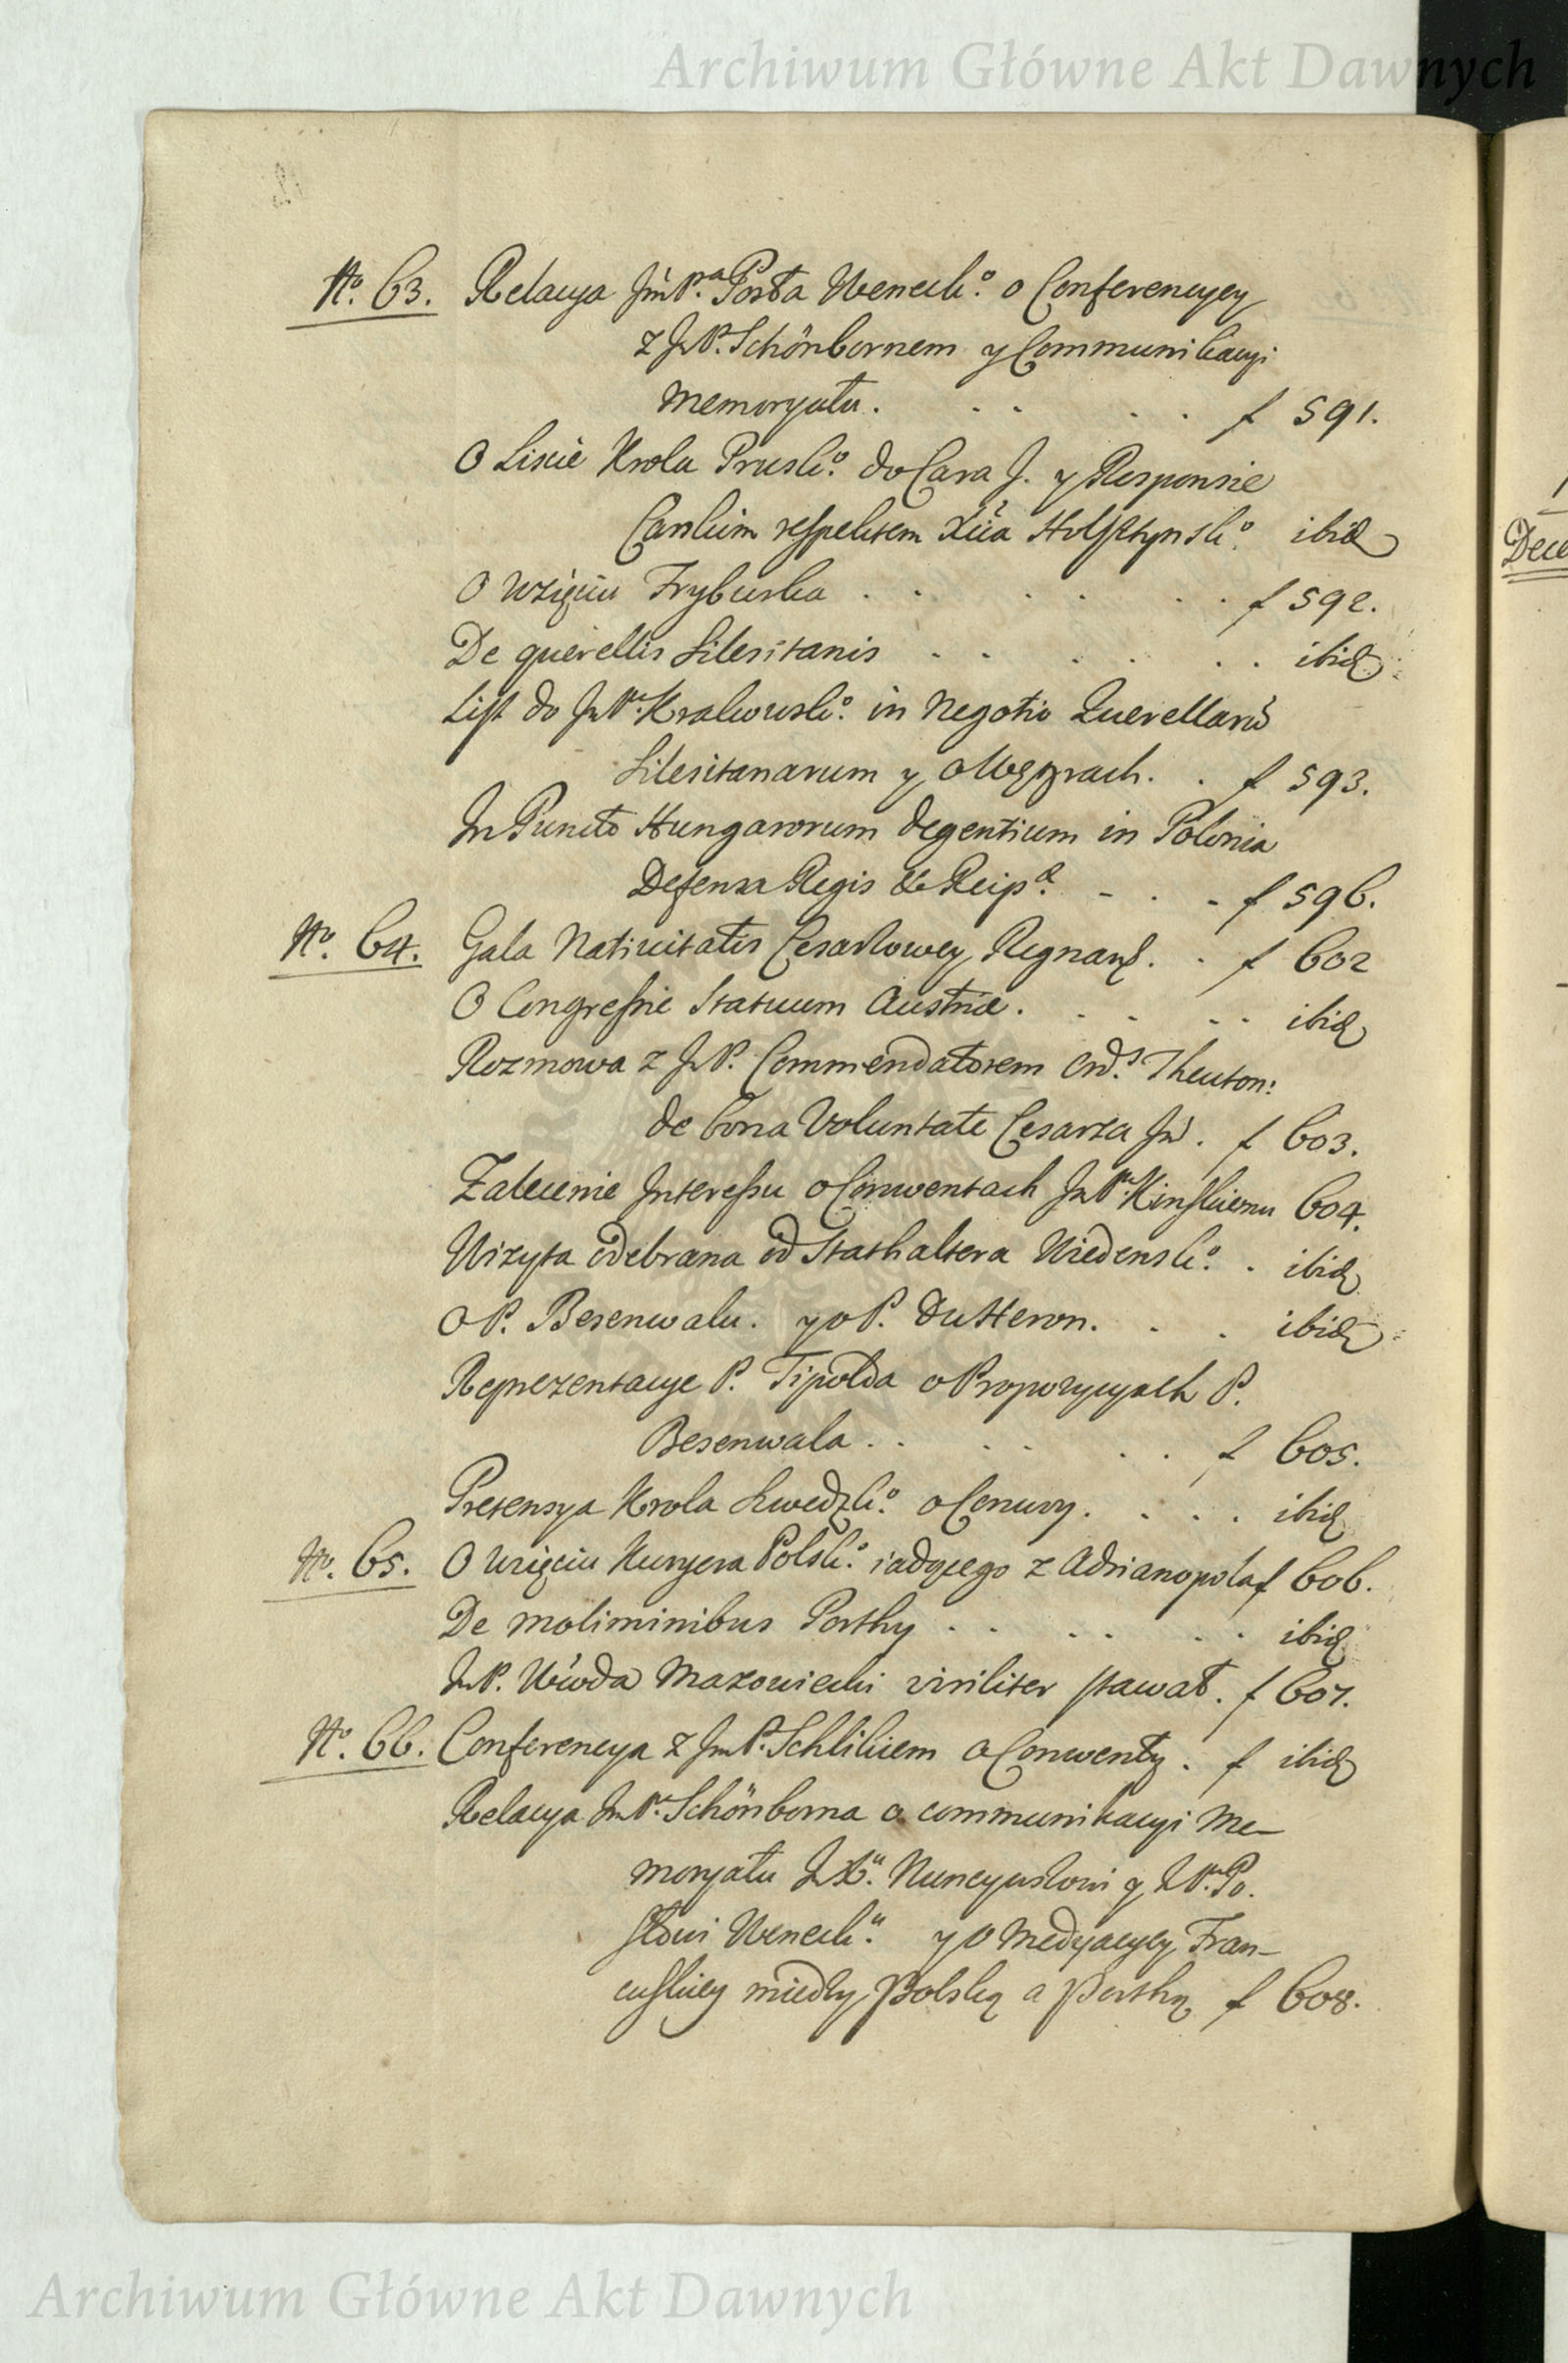 Archiwum Główne Akt Dawnych
No. 63. Relacya JmP.ⁿᵃ Posła Weneck.º o Conferencyey
z JwP. Schönbornem y Communikacyi
Memoryału. . . . . f 591.
O Liscie Krola Prusk.º do Cara J. y Responsie
Carskim respektem Xcia Holsztynsk.º ibid
O wzięciu Fryburka . . . . . . f 592.
De querellis Silesitanis . . . . . . ibid
List do JwP.ⁿᵃ Kralewsk.º in Negotio Querellarũ
Silesitanarum y o Węgrach. . f 593.
In Puncto Hungarorum degentium in Polonia
Defensa Regis & Reipˡ. - . - f 596.
No. 64. Gala Nativitatis Cesarzowey Regnanᵗ. . f 602
O Congressie Statuum Austriæ. . . . . ibid
Rozmowa z JwP. Commendatorem Ord.ˢ Theuton:
de bona Voluntate Cesarza Jm̃. f 603.
Zalecenie Interessu o Conwentach JwP.ⁿᵘ Kinskiemu 604.
Wizyta odebrana od Stathaltera Wiedensk.º . ibid
O P. Besenwalu. y o P. Du Heron. . . ibid
Reprezentacye P. Tipolda o Propozycyach P.
Besenwala . . . . . . f 605.
Pretensya Krola Szwedzk.º o Cenury. . . . ibid
No. 65. O wzięciu Kuryera Polsk.º iadącego z Adrianopola f 606.
De moliminibus Porthy . . . . . . ibid
JwP. Wwda Mazowiecki viriliter stawał. f 607.
No. 66. Conferencya z JmP. Schlikiem o Conwenty. f ibid
Relacya JmP.ⁿᵃ Schönborna o communikacyi Me-
moryału JwX.ᵘ Nuncyuszowi y JwP.ⁿᵘ Po.
słowi Weneck.ᵘ y o Medyacyey Fran-
cuskiey między Polską a Porthą f 608.
Dece
Archiwum Główne Akt Dawnych